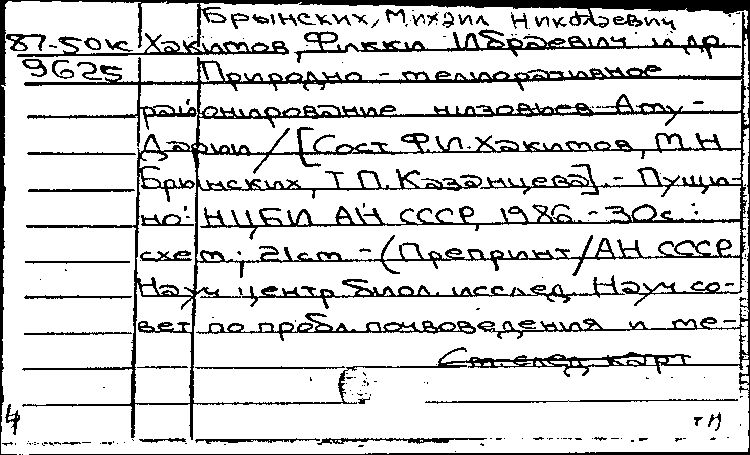 Брынских, Михаил Николаевич
87-50к Хакимов, Фикки Ибраевич и др.
9625 Природно-мелиоративное
районирование низовьев Аму-
Дарьи / [Сост Ф.И. Хакимов, М.Н
Брынских, Т.П. Казанцева]. - Пущи-
но: НЦБИ АН СССР, 1986. - 30с. :
схем; 21см - (Препринт / АН СССР
Науч центр биол. исслед. Науч со-
вет по пробл. почвоведения и ме-
См. след. карт
4